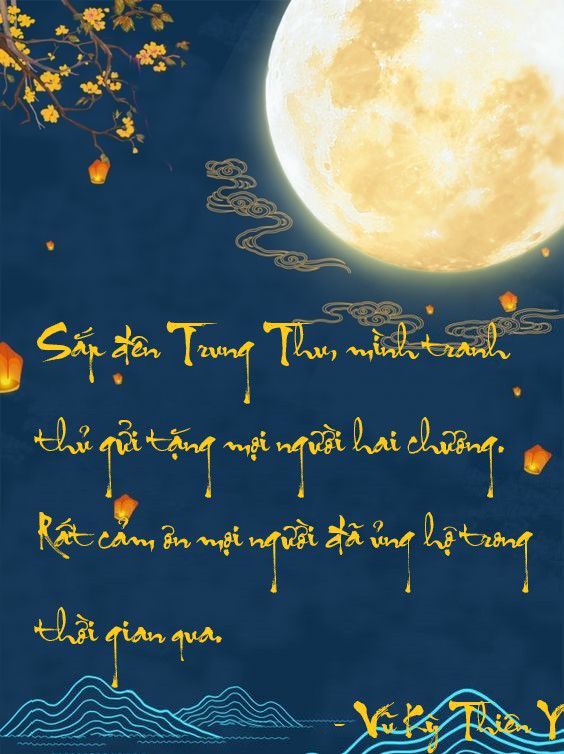 Sắp đến Trung Thu, mình tranh
thủ gửi tặng mọi người hai chương.
Rất cảm ơn mọi người đã ủng hộ trong
thời gian qua.
- Vũ Kỳ Thiên Y